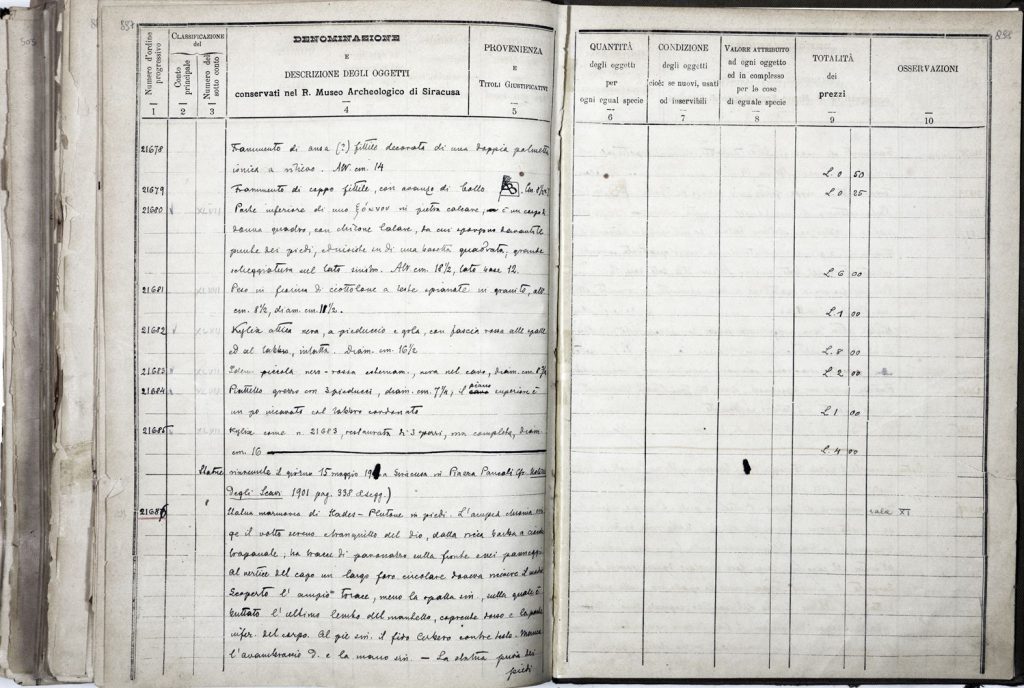 887
Numero d'ordine progressivo
CLASSIFICAZIONE del
Conto principale
Numero del sotto conto
DENOMINAZIONE
E
DESCRIZIONE DEGLI OGGETTI
conservati nel R. Museo Archeologico di Siracusa
PROVENIENZA
E
TITOLI GIUSTIFICATIVI
1 2 3 4 5
21678 Frammento di ansa (?) fittile decorata di una doppia palmetta
ionica a rilievo. Alt. cm. 14
21679 Frammento di coppo fittile, con avanzo di bollo
21680 XLVII Parte inferiore di uno ξόανον in pietra calcare, è un corpo di
donna quadro, con chitone talare, da cui sporgono davanti le
punte dei piedi, di una basetta quadrata; grande
scheggiatura nel lato sinistro. Alt. cm. 18 1/2, lato base 12.
21681 XLVII Peso in forma di ciottolone a teste spianate in granito, alt.
cm. 8 1/2, diam. cm. 11 1/2.
21682 XLVII Kylix attica nera, a pieduccio e gola, con fascia rossa alle spalle
ed al labbro, intatta. Diam. cm. 16 1/2
21683 XLVII Idem piccola nero-rossa esternam., nera nel cavo, diam. cm.
21684 XLVII Piattello grezzo con 3 pieducci, diam. cm. 7 1/2, il piano superiore è
un po incavato col labbro
21685 XLVII Kylix come n. 21683, restaurata di 3 pezzi, ma completa, diam.
cm. 16
Statue rinvenute il giorno 15 maggio a Siracusa in Piazza Pancali (cfr. Notizie
Degli Scavi 1901 pag. 338 e segg.)
21686 " Statua marmorea di Hades-Plutone in piedi. L'ampia chioma
ge il volto sereno e tranquillo del dio, dalla ricca barba a
trapanate; ha tracce di sulla fronte e nei
Al vertice del capo un largo foro circolare doveva ricevere il modio
Scoperto l'ampio torace, meno la spalla sin., sulla quale è
buttato l'ultimo lembo del mantello, coprente dorso e la parte
infer. del corpo. Al piè sin. il fido Cerbero contre teste. Manca
l'avambraccio d. e la mano sin. — La statua priva dei
piedi
888
QUANTITÀ
degli oggetti
per
ogni egual specie
CONDIZIONE
degli oggetti
cioè: se nuovi, usati
od inservibili
VALORE ATTRIBUITO
ad ogni oggetto
ed in complesso
per le cose
di eguale specie
TOTALITÀ
dei
prezzi
OSSERVAZIONI
6 7 8 9 10
L. 0 50
L. 0 25
L. 6 00
L. 1 00
L. 8 00
L. 2 00
L. 1 00
L. 4 00
sala XI